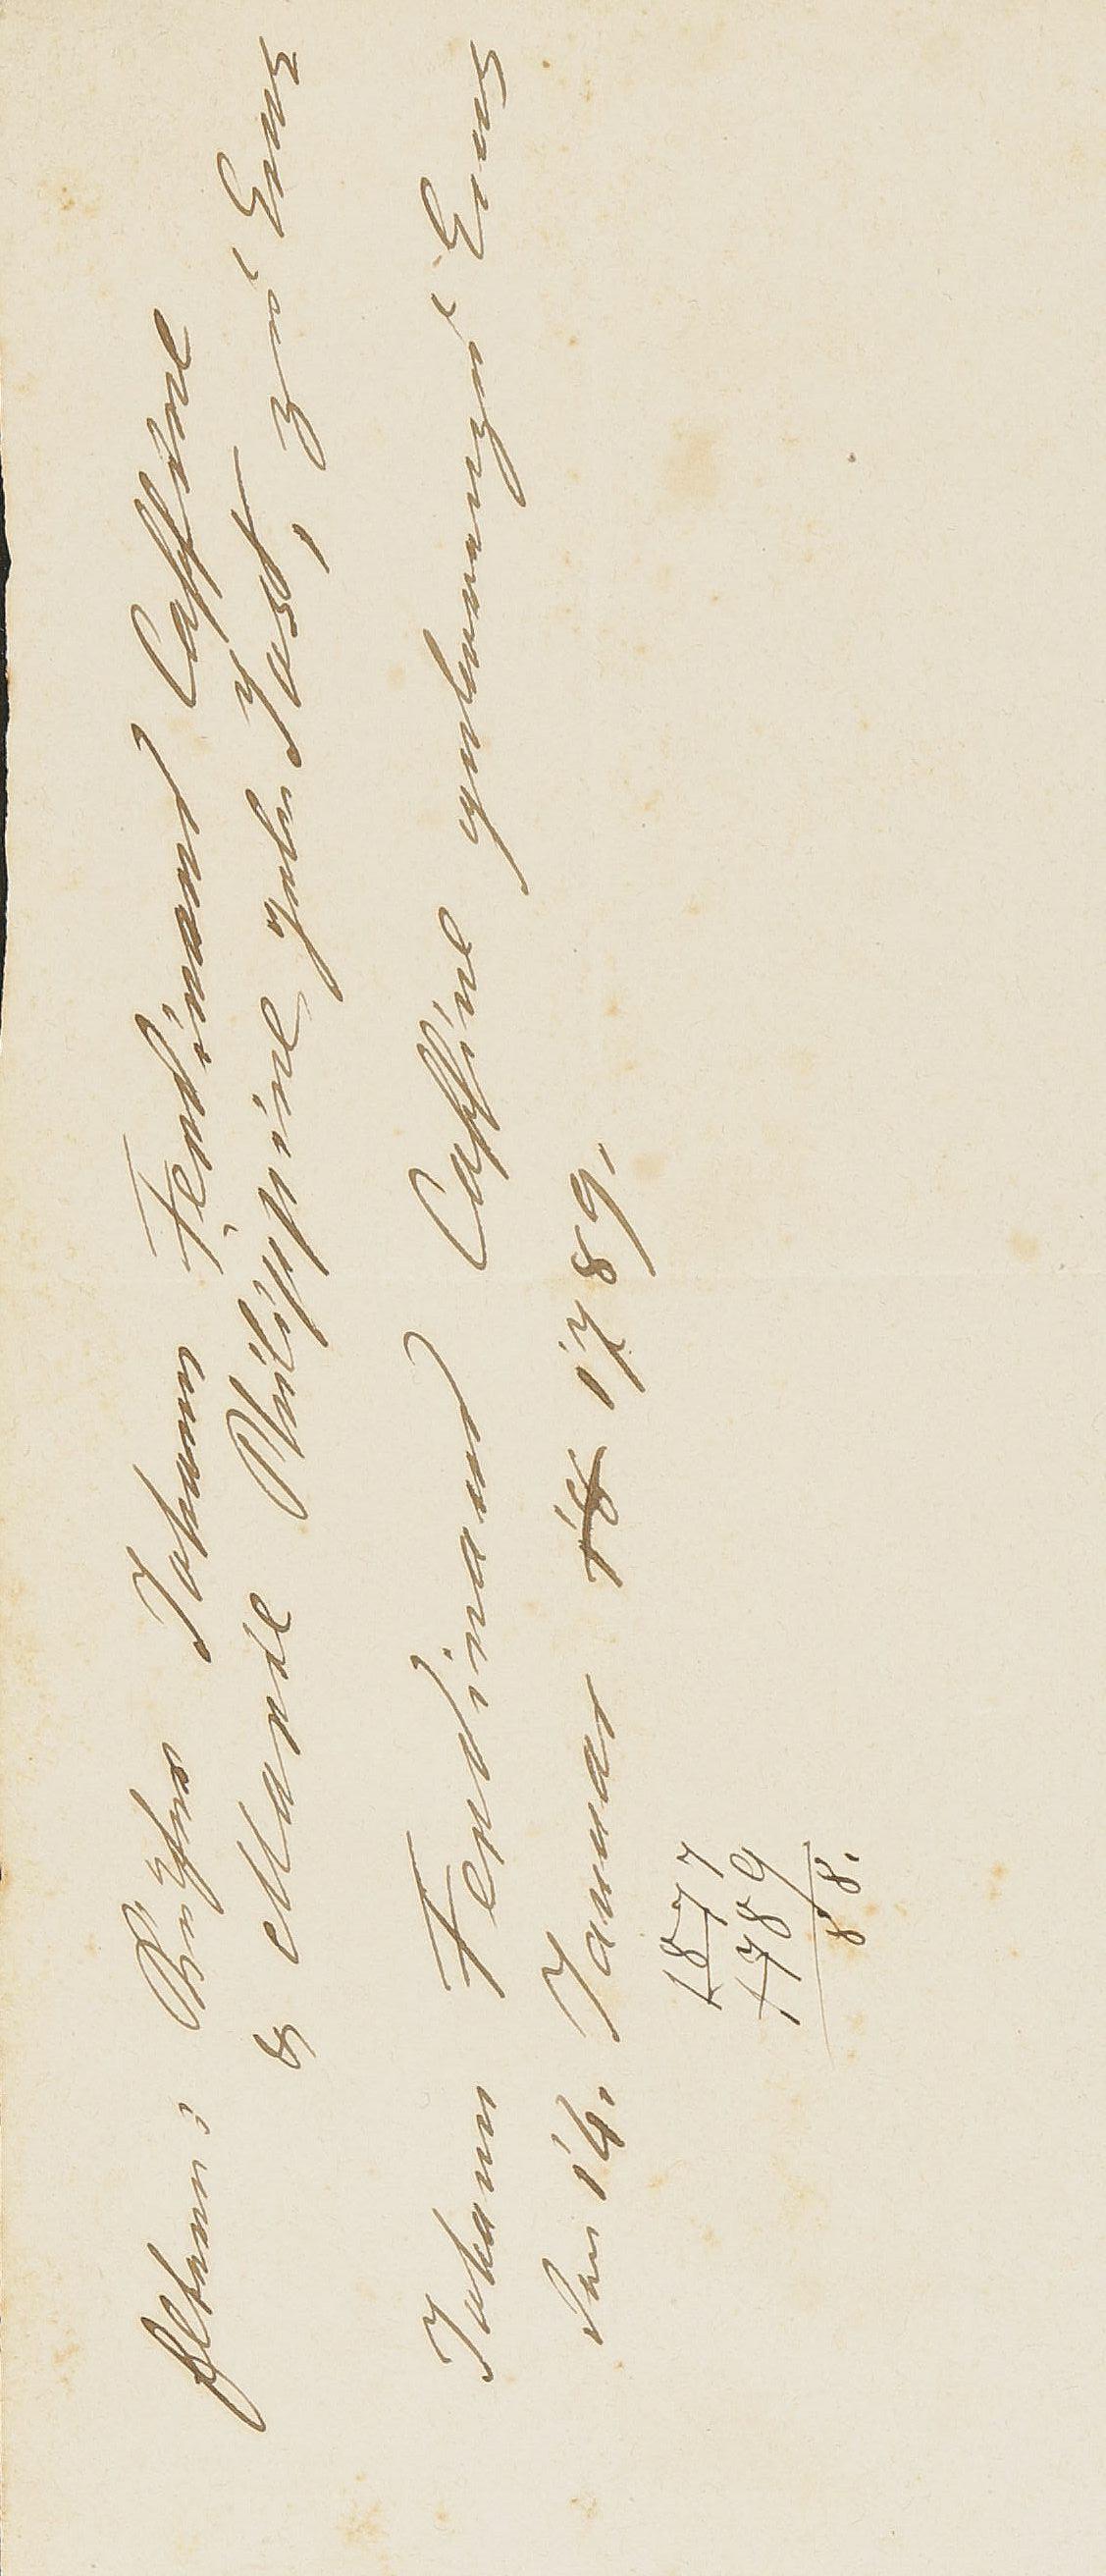 Eltern: Bäcker Johann Ferdinand Caffine
& Marie Philippine geb. Jost, zu Ems
Johann Ferdinand Caffine geboren zu Ems
den 14. Januar 18 1789.
1877
1789
88.